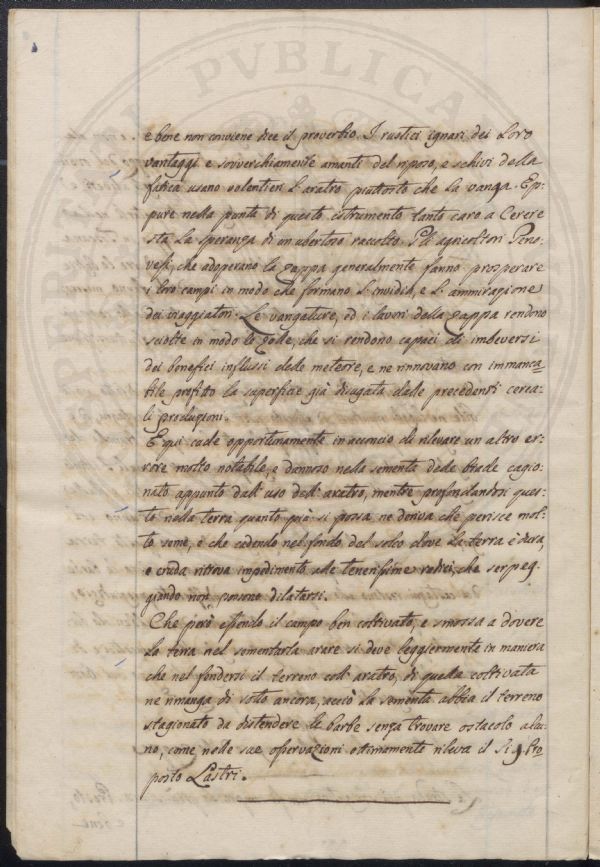 PVBLICA
e bene non conviene dice il proverbio. I rustici ignari dei Loro
vantaggi e sovverchiamente amanti del riposo, e schivi della
fatica usano volentieri L'aratro piuttosto che la vanga. Ep:
pure nella punta di questo istrumento tanto caro a Cerere
sta La speranza di un ubertoso raccolto. Gli agricoltori Geno:
vesi, che adoperano la zappa generalmente fanno prosperare
i loro campi in modo che formano L'invidia, e L'ammirazione
dei viaggiatori. Le vangature, ed i lavori della zappa rendono
sciolte in modo le zolle, che si rendono capaci di imbeversi
dei benefici influssi delle meteore, e ne rinnovano con immanca=
bile profitto la superficie già disugata dalle precedenti cerea:
li produzioni.
E qui cade opportunamente in acconcio di rilevare un altro er:
rore molto notabile, e dannoso nella sementa delle biade cagio:
nato appunto dall'uso dell'aratro, mentre profondandosi ques:
to nella terra quanto più si possa ne deriva che perisce mol:
to seme, e che cedendo nel fondo del solco dove La terra è dura,
e cruda ritrova impedimento alle tenerissime radici, che serpeg:
giando non possono dilatarsi.
Che però essendo il campo ben coltivato, e smossa a dovere
La terra nel sementarla arare si deve leggiermente in maniera
che nel fendersi il terreno coll'aratro, di quella coltivata
ne rimanga di sotto ancora, acciò La sementa abbia il terreno
stagionato da distendere le barbe senza trovare ostacolo alcu:
no, come nelle sue osservazioni ottimamente rileva il Sig. Pro:
posto Lastri.